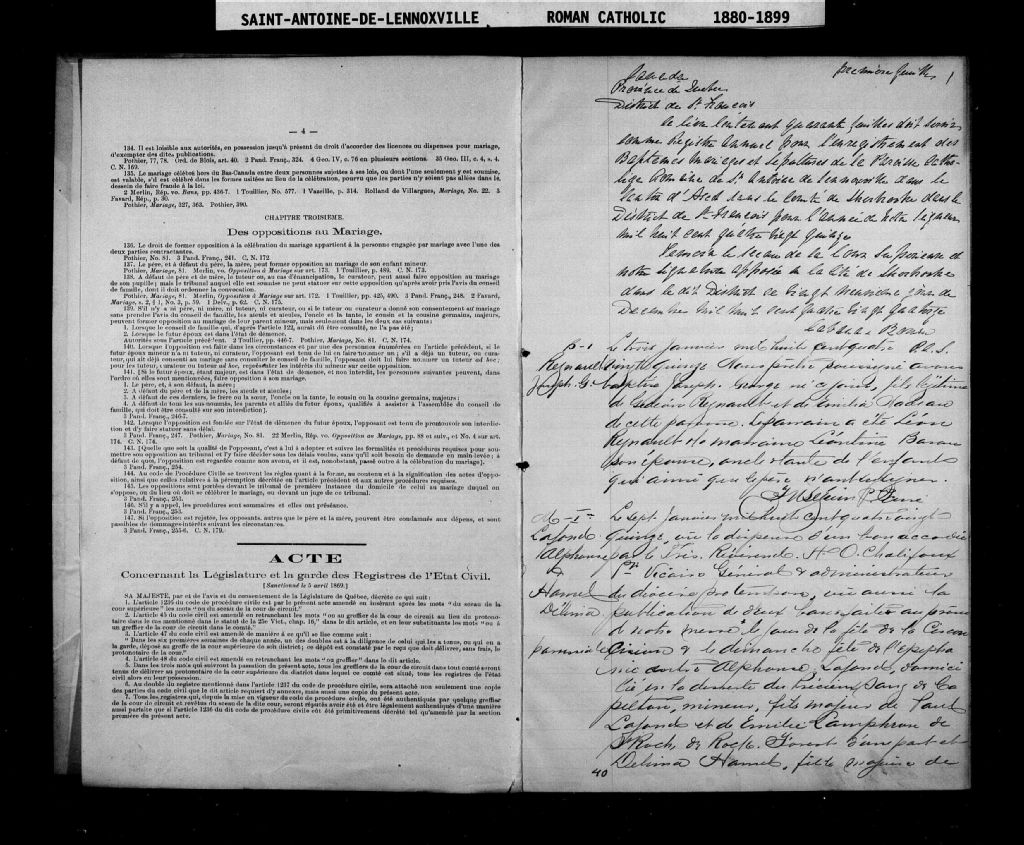 SAINT-ANTOINE-DE-LENNOXVILLE ROMAN CATHOLIC 1880-1899
— 4 —
134. Il est loisible aux autorités, en possession jusqu'à présent du droit d'accorder des licences ou dispenses pour mariage,
d'exempter des dites publications.
Pothier, 77, 78. Ord. de Blois, art. 40. 2 Pand. Franç., 324. 4 Geo. IV, c. 76 en plusieurs sections. 35 Geo. III, c. 4, s. 4.
C. N. 169.
135. Le mariage célébré hors du Bas-Canada entre deux personnes sujettes à ses lois, ou dont l'une seulement y est soumise,
est valable, s'il est célébré dans les formes usitées au lieu de la célébration, pourvu que les parties n'y soient pas allées dans le
dessein de faire fraude à la loi.
2 Merlin, Rép. vo. Bans, pp. 436-7. 1 Touillier, No. 577. 1 Vazeille, p. 314. Rolland de Villargues, Mariage, No. 22. 5
Favard, Rép., p. 30.
Pothier, Mariage, 327, 363. Pothier, 390.
CHAPITRE TROISIEME.
Des oppositions au Mariage.
136. Le droit de former opposition à la célébration du mariage appartient à la personne engagée par mariage avec l'une des
deux parties contractantes.
Pothier, No. 81. 3 Pand. Franç., 241. C. N. 172
137. Le père, et à défaut du père, la mère, peut former opposition au mariage de son enfant mineur.
Pothier, Mariage, 81. Merlin, vo. Opposition à Mariage sur art. 173. 1 Touillier, p. 489. C. N. 173.
138. A défaut de père et de mère, le tuteur ou, au cas d'émancipation, le curateur, peut aussi faire opposition au mariage
de son pupille; mais le tribunal auquel elle est soumise ne peut statuer sur cette opposition qu'après avoir pris l'avis du conseil
de famille, dont il doit ordonner la convocation.
Pothier, Mariage, 81. Merlin, Opposition à Mariage sur art. 172. 1 Touillier, pp. 425, 490. 3 Pand. Franç., 248. 2 Favard,
Mariage, s. 2, § 1, No. 3, p. 59. 1 Delv., p. 62. C. N. 175.
139. S'il n'y a ni père, ni mère, ni tuteur, ni curateur, ou si le tuteur ou curateur a donné son consentement au mariage
sans prendre l'avis du conseil de famille, les aïeuls et aïeules, l'oncle et la tante, le cousin et la cousine germains, majeurs,
peuvent former opposition au mariage de leur parent mineur, mais seulement dans les deux cas suivants:
1. Lorsque le conseil de famille qui, d'après l'article 122, aurait dû être consulté, ne l'a pas été;
2. Lorsque le futur époux est dans l'état de démence.
Autorités sous l'article précédent. 2 Touillier, pp. 446-7. Pothier, Mariage, No. 81. C. N. 174.
140. Lorsque l'opposition est faite dans les circonstances et par une des personnes énumérées en l'article précédent, si le
futur époux mineur n'a ni tuteur, ni curateur, l'opposant est tenu de lui en faire nommer un; s'il a déjà un tuteur, ou curateur
qui ait déjà consenti au mariage sans consulter le conseil de famille, l'opposant doit lui faire nommer un tuteur ad hoc;
pour les tuteur, curateur ou tuteur ad hoc, représenter les intérêts du mineur sur cette opposition.
141. [Si le futur époux, étant majeur, est dans l'état de démence, et non interdit, les personnes suivantes peuvent, dans
l'ordre où elles sont mentionnées, faire opposition à son mariage.
1. Le père, et, à son défaut, la mère;
2. A défaut du père et de la mère, les aïeuls et aïeules;
3. A défaut de ces derniers, le frère ou la sœur, l'oncle ou la tante, le cousin ou la cousine germains, majeurs;
4. A défaut de tous les sus-nommés, les parents et alliés du futur époux, qualifiés à assister à l'assemblée du conseil de
famille, qui doit être consulté sur son interdiction].
3 Pand. Franç., 246-7.
142. Lorsque l'opposition est fondée sur l'état de démence du futur époux, l'opposant est tenu de promouvoir son interdiction
et d'y faire statuer sans délai.
3 Pand. Franç., 247. Pothier, Mariage, No. 81. 22 Merlin, Rép. vo. Opposition au Mariage, pp. 88 et suiv., et No. 4 sur art.
174. C. N. 174.
143. [Quelque que soit la qualité de l'opposant, c'est à lui à adopter et suivre les formalités et procédures requises pour soumettre
son opposition au tribunal et l'y faire décider sous les délais voulus, sans qu'il soit besoin de demande en main-levée; à
défaut de quoi, l'opposition est regardée comme non avenu, et il est, nonobstant, passé outre à la célébration du mariage].
3 Pand. Franç., 254.
144. Au code de Procédure Civile se trouvent les règles quant à la forme, au contenu et à la signification des actes d'opposition,
ainsi que celles relatives à la péremption décrétée en l'article précédent et aux autres procédures requises.
145. Les oppositions sont portées devant le tribunal de première instance du domicile de celui au mariage duquel on
s'oppose, ou du lieu où doit se célébrer le mariage, ou devant un juge de ce tribunal.
3 Pand. Franç., 253.
146. S'il y a appel, les procédures sont sommaires et elles ont préséance.
3 Pand. Franç., 253.
147. Si l'opposition est rejetée, les opposants, autres que le père et la mère, peuvent être condamnés aux dépens, et sont
passibles de dommages-intérêts suivant les circonstances.
3 Pand. Franç., 255-6. C. N. 179.
ACTE
Concernant la Législature et la garde des Registres de l'Etat Civil.
[Sanctionné le 5 avril 1869.]
SA MAJESTE, par et de l'avis et du consentement de la Législature de Québec, décrète ce qui suit:
1. L'article 1236 du code de procédure civile est par le présent acte amendé en insérant après les mots "du sceau de la cour
supérieure" les mots "ou du sceau de la cour de circuit."
2. L'article 45 du code civil est amendé en retranchant les mots "ou au greffier de la cour de circuit au lieu du protonotaire
dans le cas mentionné dans le statut de la 25e Vict., chap. 16," dans le dit article, et en leur substituants les mots "ou à
un greffier de la cour de circuit dans le comté."
3. L'article 47 du code civil est amendé de manière à ce qu'il se lise comme suit:
"Dans les six premières semaines de chaque année, un des doubles est à la diligence de celui qui les a tenus, ou qui en a
la garde, déposé au greffe de la cour supérieure de son district; ce dépôt est constaté par le reçu que doit délivrer, sans frais, le
protonotaire de la cour."
4. L'article 48 du code civil est amendé en retranchant les mots "ou greffier" dans le dit article.
5. Dans les trois mois qui suivront la passation du présent acte, tous les greffiers de la cour de circuit dans tout comté seront
tenus de délivrer au protonotaire de la cour supérieure du district dans lequel ce comté est situé, tous les registres de l'état
civil alors en leur possession.
6. Au double registre mentionné dans l'article 1237 du code de procédure civile, sera attaché non seulement une copie
des parties du code civil que le dit article requiert d'y annexer, mais aussi une copie du présent acte.
7. Tous les registres qui, depuis la mise en vigueur du code de procédure civile, ont été authentiqués par quelque greffier
de la cour de circuit et revêtus du sceau de la dite cour, seront réputés avoir été et être légalement authentiqués d'une manière
aussi parfaite que si l'article 1236 du dit code de procédure civile eût été primitivement décrété tel qu'amendé par la section
première du présent acte.
première feuille 1
Canada
Province de Québec
District de St. François
Ce livre contenant quarante feuilles doit servir
comme registre annuel pour l'enregistrement des
Baptêmes mariages et sépultures de la Paroisse Catho-
lique Romaine de St. Antoine de Lennoxville dans le
Canton d'Ascot dans le comté de Sherbrooke dans le
District de St. François pour l'année de notre seigneur
mil huit cent quatre vingt quinze
Témoin le sceau de la Cour Supérieure et
notre signature apposée en la Cité de Sherbrooke
dans le dit District ce vingt neuvième jour de
Décembre mil huit cent quatre vingt quatorze
P. C. S.
B-1
Reynault
Joseph. G.
Le trois janvier mil huit cent quatre
vingt quinze Nous prêtre soussigné avons
baptisé Joseph. George né, fils légitime
de Gédéon Reynault et de Emélie
de cette paroisse. Le parrain a été Léon
Reynault & la marraine Léontine
son épouse, oncle & tante de l'enfant
qui ainsi que le père n'ont su signer.
Ptre
M-1
Lafond
Alphonse
&
Hamel
Délima
Le sept janvier mil huit cent quatre vingt
quinze, vu la dispense d'un ban accordée
par le Très Révérend H. O. Chalifoux
Ptr Vicaire Général & administrateur
du diocèse, vu aussi la
publication de deux bans faite au prône
de notre messe le jour de la fête de la Circon
cision & le dimanche fête de l'Epipha
nie entre Alphonse Lafond, domici
lié en la desserte du Précieux Sang de Ca
pelton, mineur, fils majeur de Paul
Lafond et de Emilie Lamphron de
St Roch de Rock Forest d'une part et
Délima Hamel, fille majeure de
40